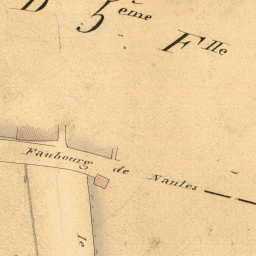 D 5ème Flle
Faubourg de Nantes
le